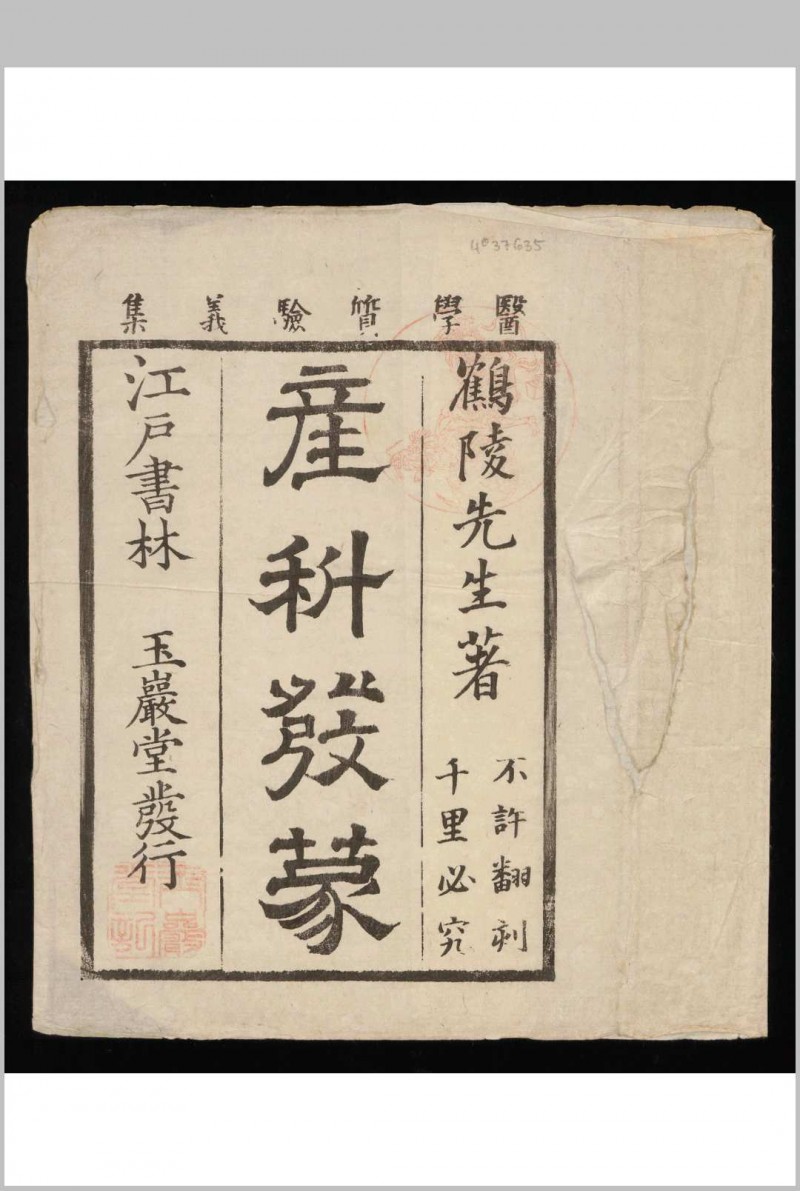 4037635
醫學質驗義集
鶴陵先生著
不許翻刻
千里必究
産科發蒙
江戸書林 玉巖堦發行